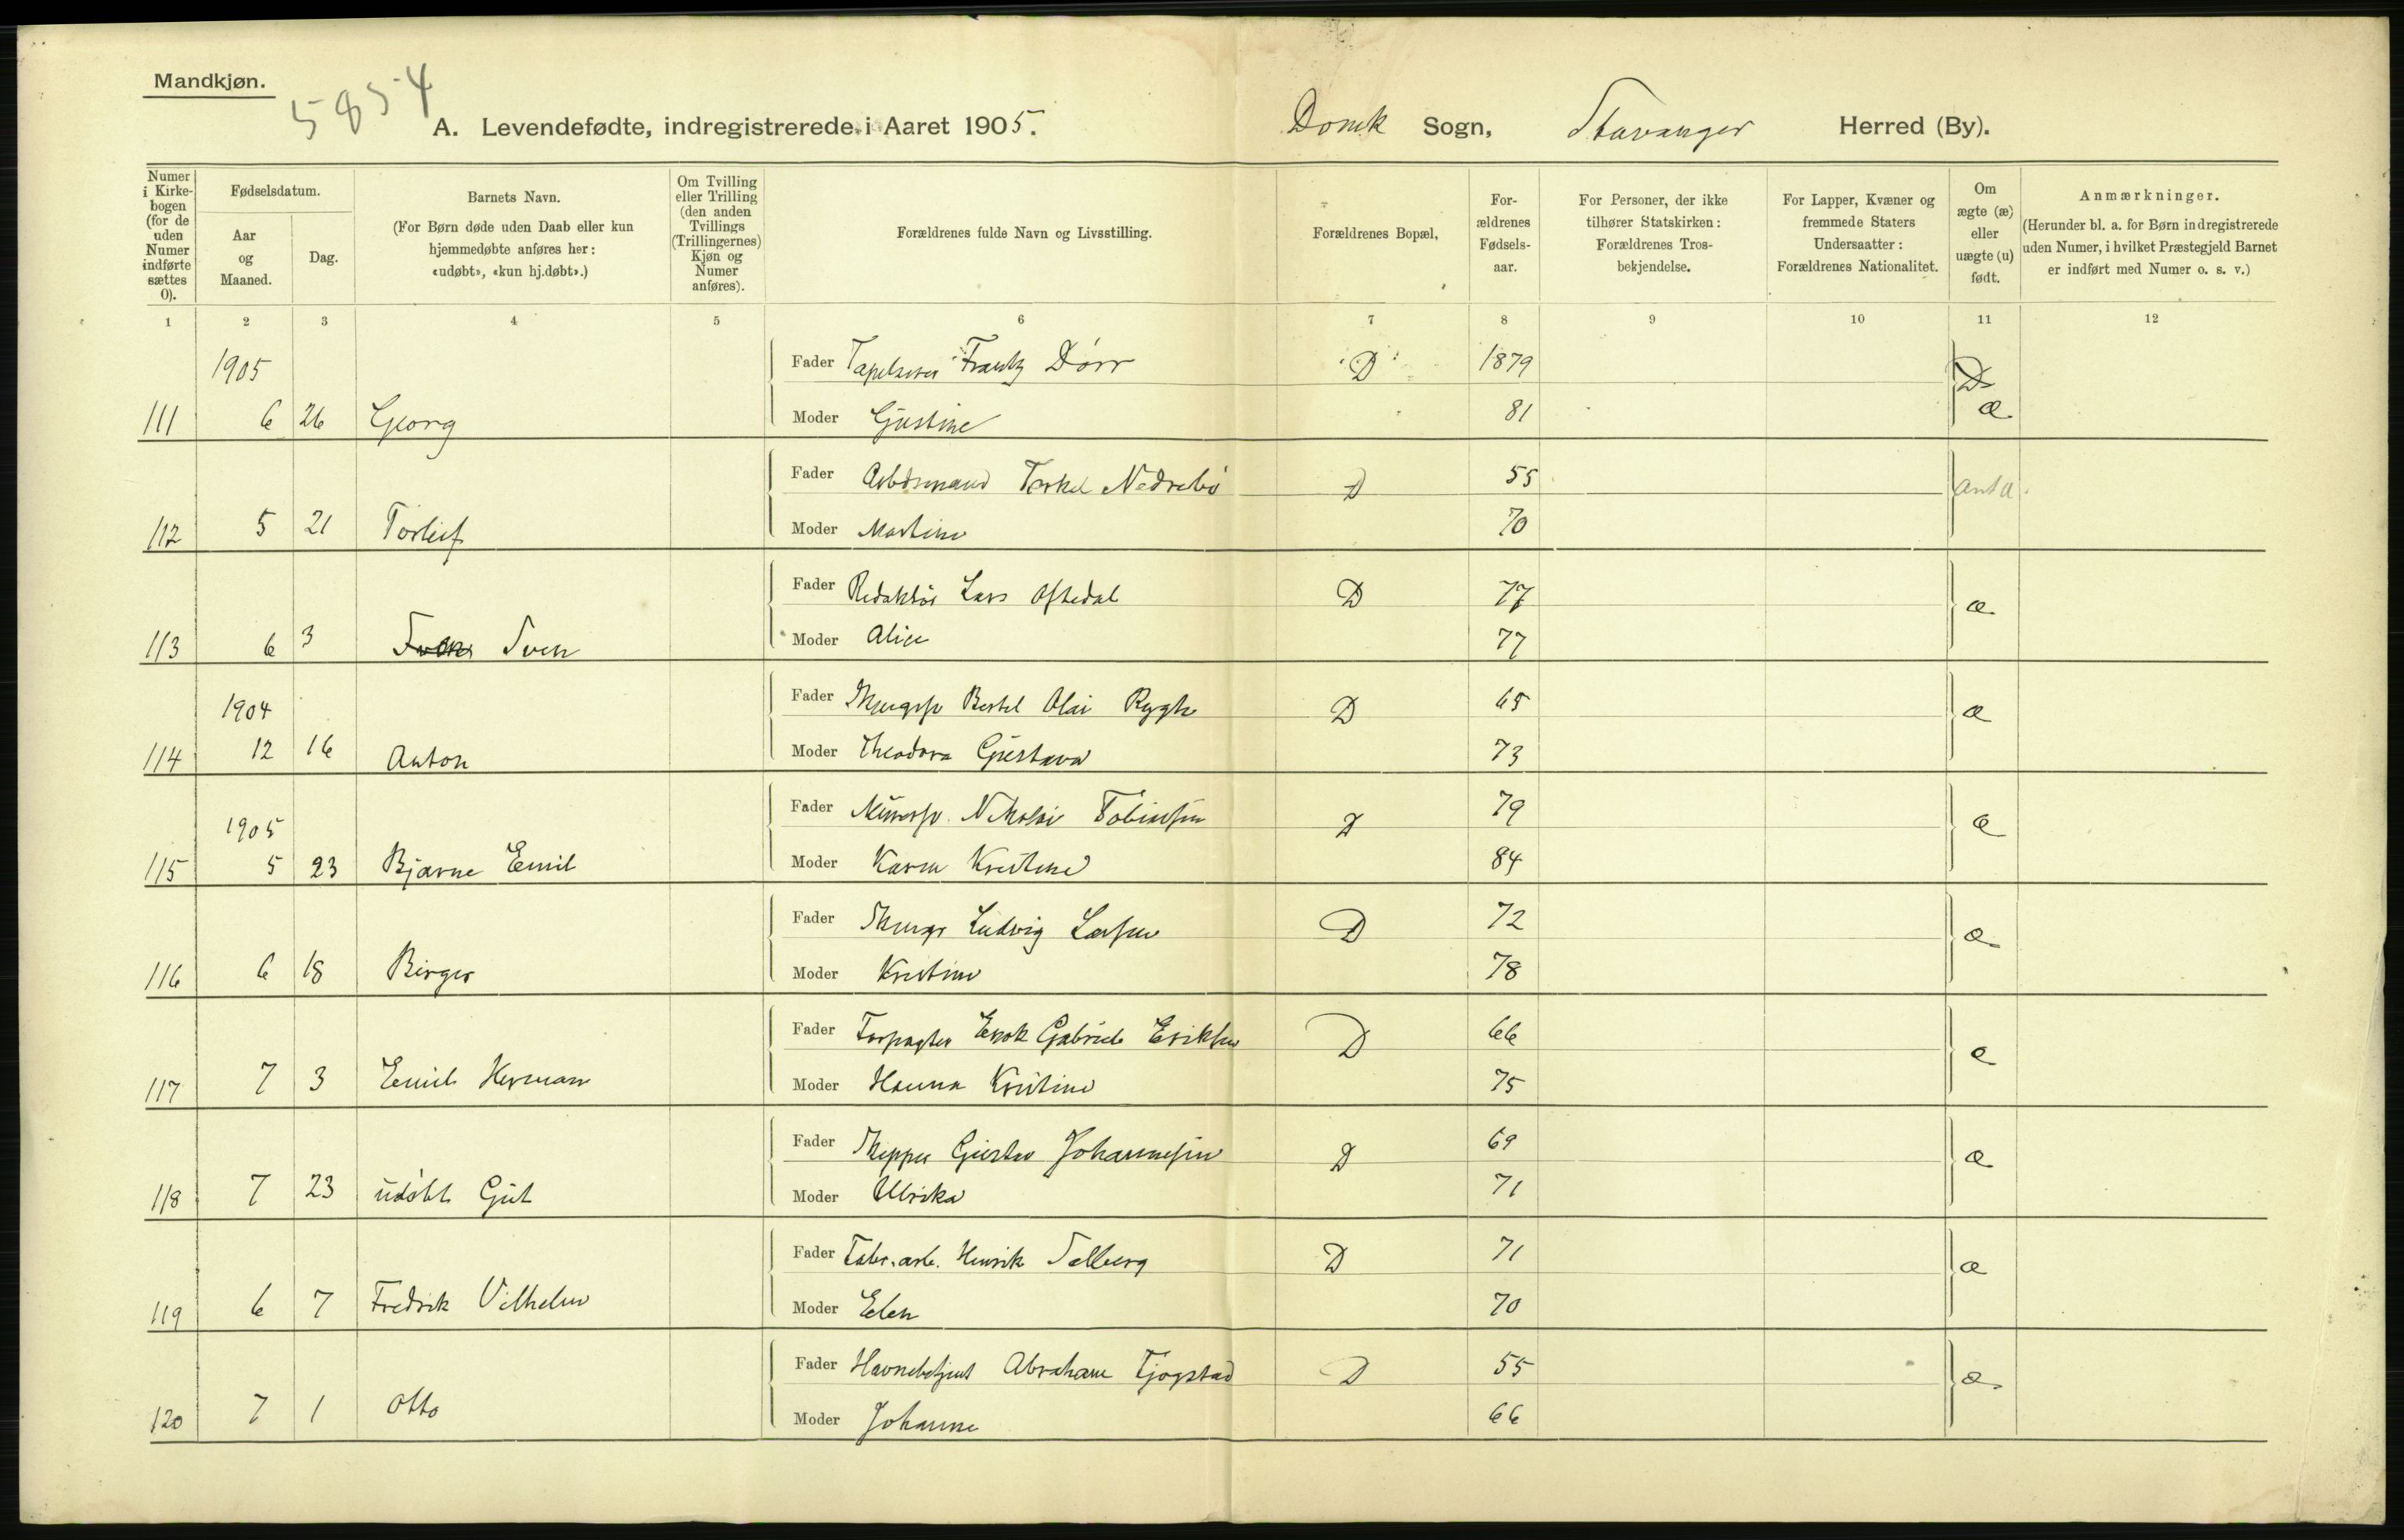 Mandkjøn.
5854
A. Levendefødte, indregistrerede i Aaret 1905.
Domk Sogn, Stavanger Herred (By).
Numer i Kirke-bogen (for de uden Numer indførte sættes 0).
Fødselsdatum.
Aar og Maaned.
Dag.
Barnets Navn.
(For Børn døde uden Daab eller kun hjemmedøbte anføres her: «udøbt», «kun hj.døbt».)
Om Tvilling eller Trilling (den anden Tvillings (Trillingernes) Kjøn og Numer anføres).
Forældrenes fulde Navn og Livsstilling.
Forældrenes Bopæl,
For-ældrenes Fødsels-aar.
For Personer, der ikke tilhører Statskirken: Forældrenes Tros-bekjendelse.
For Lapper, Kvæner og fremmede Staters Undersaatter: Forældrenes Nationalitet.
Om ægte (æ) eller uægte (u) født.
Anmærkninger.
(Herunder bl. a. for Børn indregistrerede uden Numer, i hvilket Præstegjeld Barnet er indført med Numer o. s. v.)
1 2 3 4 5 6 7 8 9 10 11 12
1905 Fader Frantz Dörr D 1879 D
111 6 26 Georg Moder Gustine 81 æ
Fader Arbdsmand Torkel Nedrebö D 55
112 5 21 Torleif Moder Martine 70
Fader Redaktör Lars Oftedal D 77 æ
113 6 3 Sven Moder Alice 77
1904 Fader Bertel Olai Rygh D 65 æ
114 12 16 Anton Moder Theodora Gustava 73
1905 Fader Murersv. Nikolai Tobiassen D 79 æ
115 5 23 Bjarne Emil Moder Karen Kristine 84
Fader Ludvig Larsen D 72 æ
116 6 18 Birger Moder Kristine 78
Fader Forpagter Enok Gabriel Eriksen D 66 æ
117 7 3 Emil Herman Moder Hanna Kristine 75
Fader Skipper Gustav Johannesen D 69 æ
118 7 23 udöbt Gut Moder Ulrika 71
Fader Fabr.arb. Henrik Salberg D 71 æ
119 6 7 Fredrik Vilhelm Moder Elen 70
Fader Havnebetjent Abraham Tjogstad D 55 æ
120 7 1 Otto Moder Johanne 66